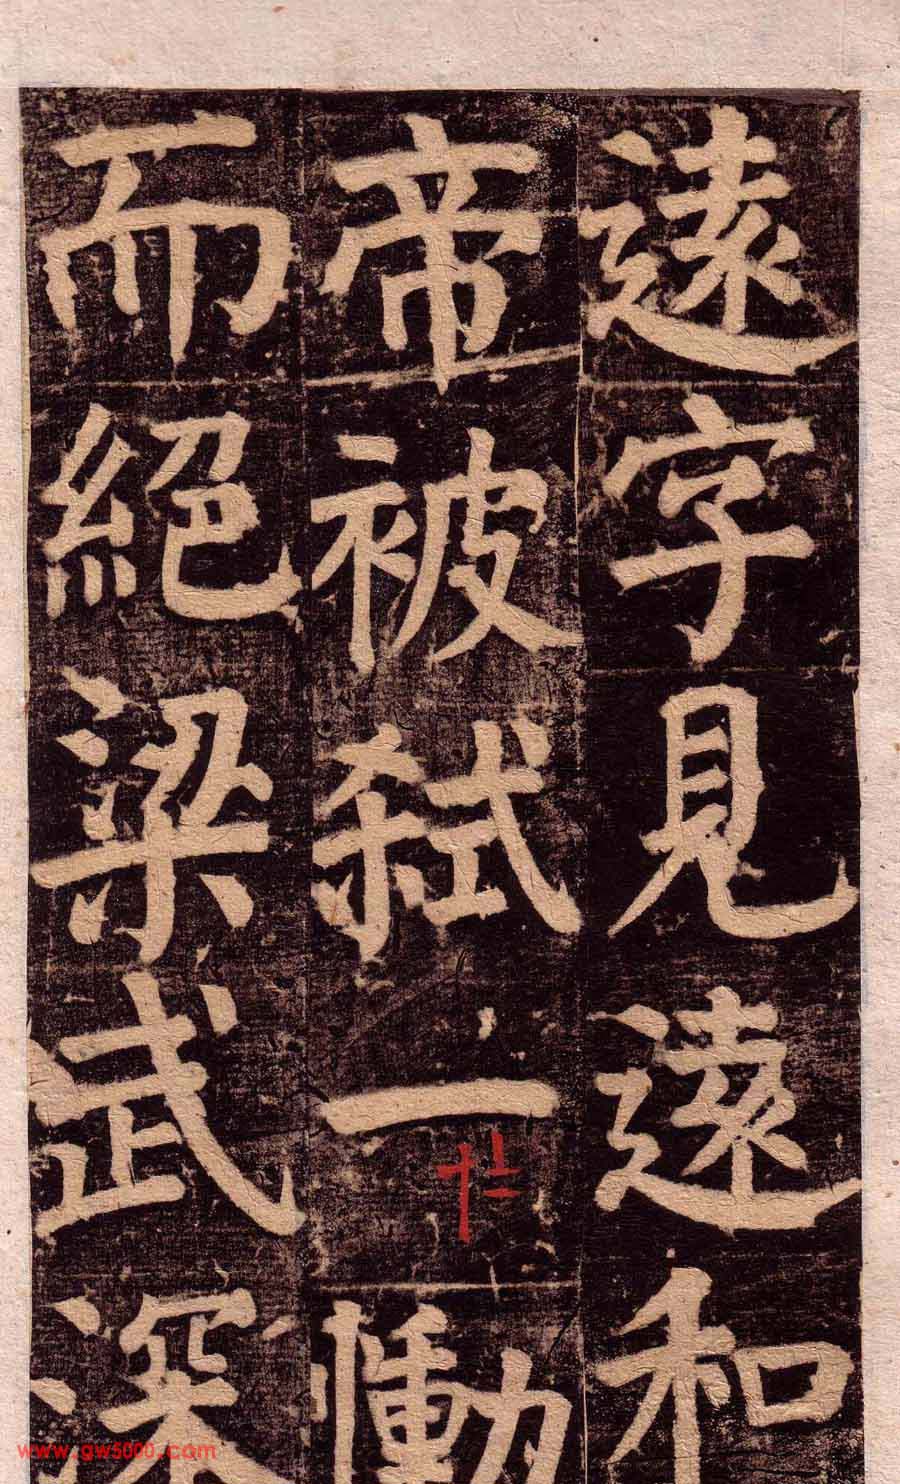 遠字見遠和
帝被弑一慟
而絕梁武深
www.gw5000.com